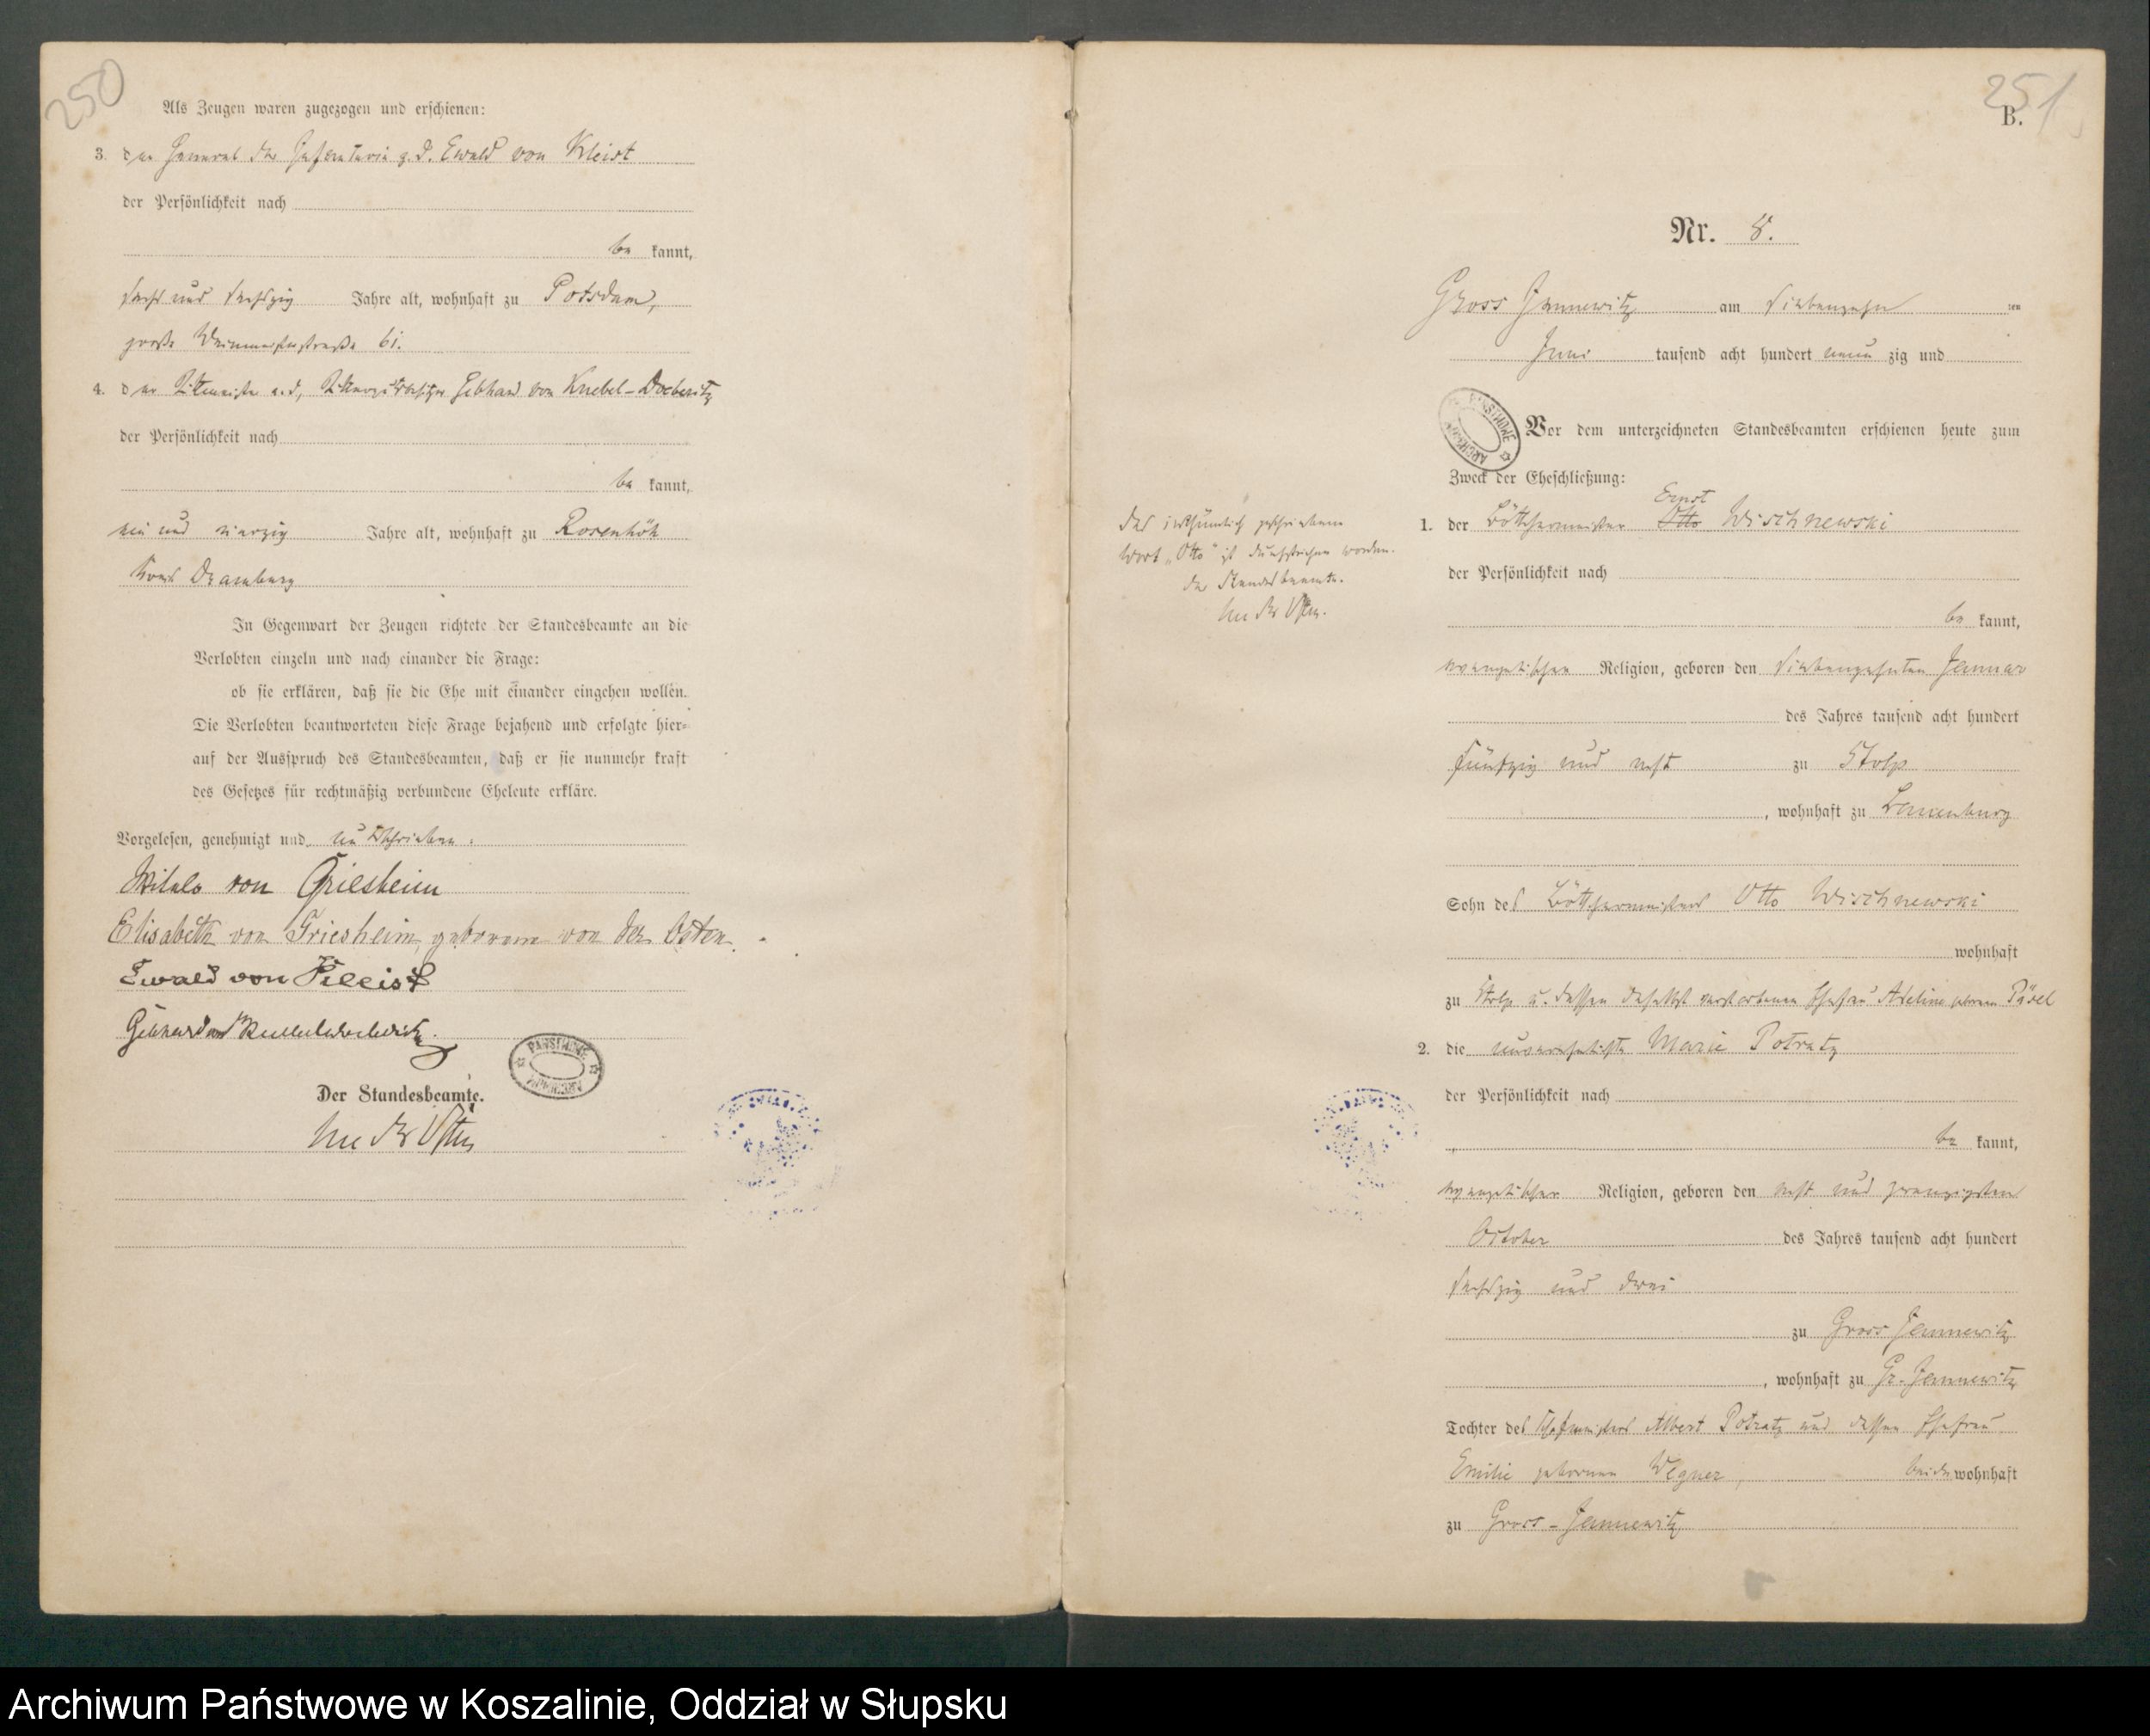 250
Als Zeugen waren zugezogen und erschienen:
3. der General der Infanterie z. D. Ewald von Kleist
der Persönlichkeit nach
be kannt,
sechs und sechszig Jahre alt, wohnhaft zu Potsdam,
große Weinmeisterstraße 61.
4. der Rittmeister a. D., Rittergutsbesitzer Gebhard von Knebel-Doeberitz
der Persönlichkeit nach
be kannt,
ein und vierzig Jahre alt, wohnhaft zu Rosenhöh
Kreis Dramburg
In Gegenwart der Zeugen richtete der Standesbeamte an die
Verlobten einzeln und nach einander die Frage:
ob sie erklären, daß sie die Ehe mit einander eingehen wollen.
Die Verlobten beantworteten diese Frage bejahend und erfolgte hier-
auf der Ausspruch des Standesbeamten, daß er sie nunmehr kraft
des Gesetzes für rechtmäßig verbundene Eheleute erkläre.
Vorgelesen, genehmigt und unterschrieben:
von Griesheim
Elisabeth von Griesheim, geborene von der Osten.
Ewald von Kleist
Gebhard von Knebel Doeberitz.
Der Standesbeamte.
von der Osten
251
B.
Nr. 8.
Gross Jannewitz am siebenzehn ten
Juni tausend acht hundert neun zig und
Vor dem unterzeichneten Standesbeamten erschienen heute zum
Zweck der Eheschließung:
Ernst
1. der Böttchermeister Otto Wischnewski
der Persönlichkeit nach
be kannt,
evangelischer Religion, geboren den siebenzehnten Januar
des Jahres tausend acht hundert
fünfzig und acht zu Stolp
, wohnhaft zu Lauenburg
Sohn des Böttchermeisters Otto Wischnewski
wohnhaft
zu Stolp u. dessen daselbst verstorbenen Ehefrau Adeline geborene
2. die unverehelichte Marie Potratz
der Persönlichkeit nach
be kannt,
evangelischer Religion, geboren den acht und zwanzigsten
October des Jahres tausend acht hundert
sechszig und drei
zu Gross Jannewitz
, wohnhaft zu Gr. Jannewitz
Tochter des Hofmeisters Albert Potratz und dessen Ehefrau
Emilie geborenen Wegner, beide wohnhaft
zu Gross-Jannewitz
das irrthümlich geschriebene
Wort „Otto“ ist durchstrichen worden.
der Standesbeamte.
von der Osten.
Archiwum Państwowe w Koszalinie, Oddział w Słupsku